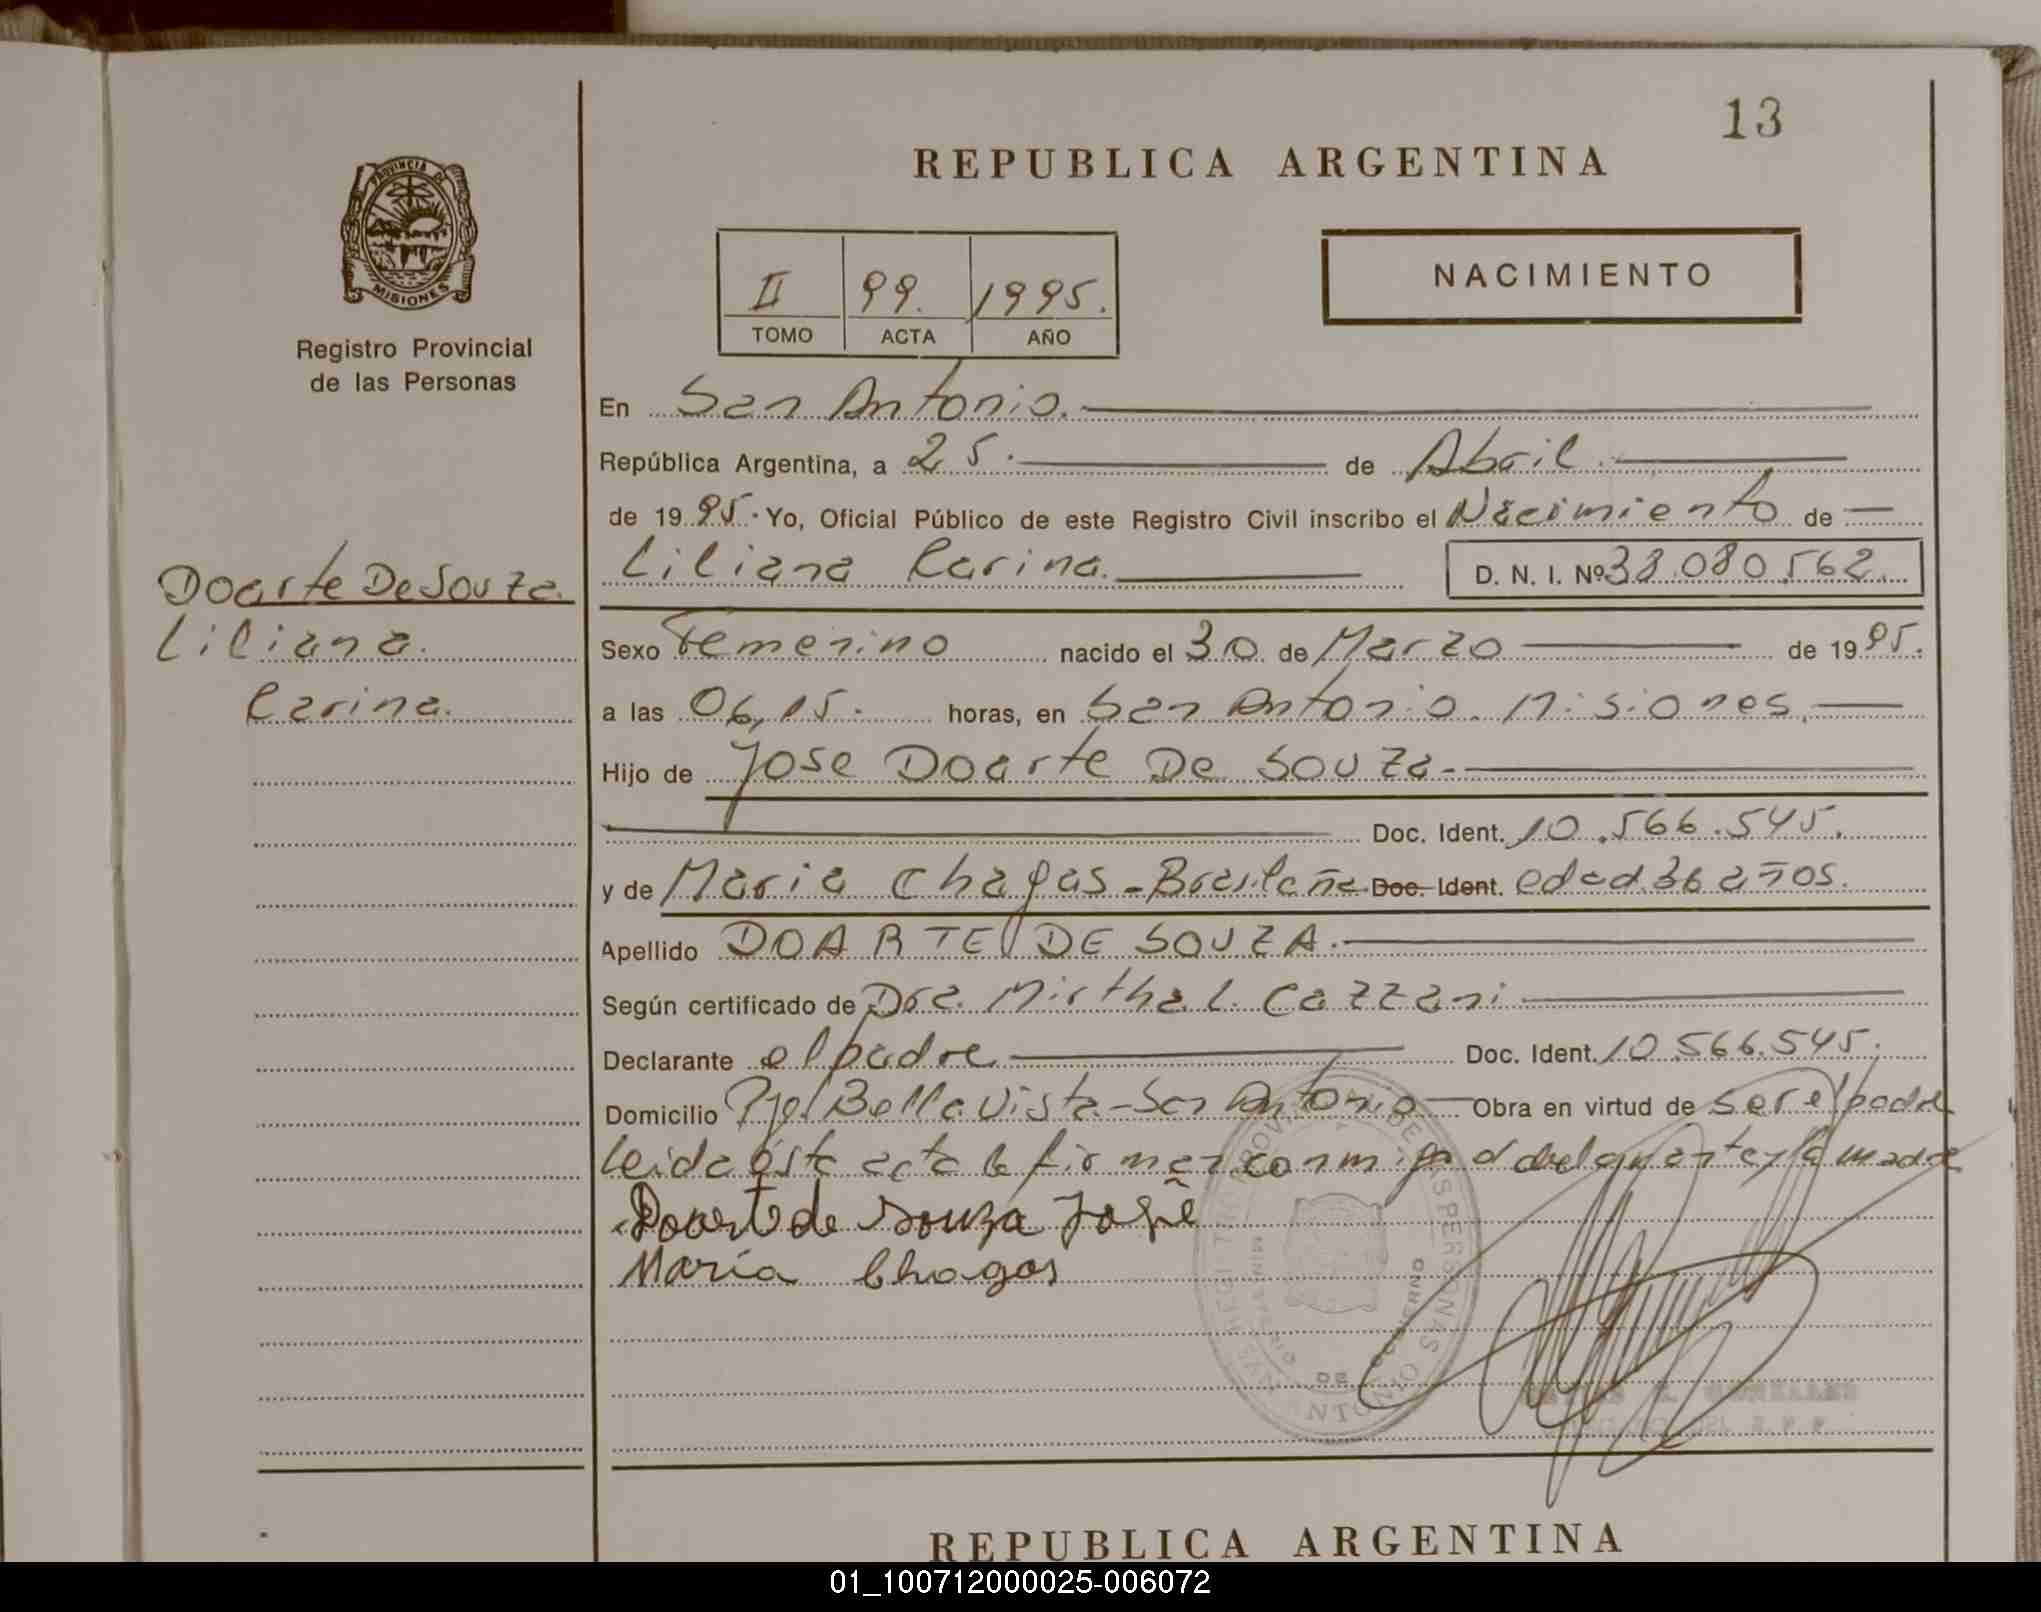 13
REPUBLICA ARGENTINA
PROVINCIA DE
MISIONES
Registro Provincial
de las Personas
II 99. 1995.
TOMO ACTA AÑO
NACIMIENTO
En San Antonio.
República Argentina, a 25. de Abril.
de 1995. Yo, Oficial Público de este Registro Civil inscribo el Nacimiento de
Liliana Carina. D. N. I. Nº 38.080.562.
Doarte De Souza.
Liliana.
Carina.
Sexo Femenino nacido el 30 de Marzo de 1995.
a las 06,15. horas, en San Antonio. Misiones.
Hijo de Jose Doarte De Souza.
Doc. Ident. 10.566.545.
y de Maria Chagas - Brasileña Doc. Ident. edad 36 años.
Apellido DOARTE DE SOUZA.
Según certificado de Dra. Mirtha L. Cazzani
Declarante el padre Doc. Ident. 10.566.545.
Domicilio Pje. Bella Vista - San Antonio Obra en virtud de ser el padre
leida ésta acta la firman conmigo el declarante y la madre
Doarte de Souza José
María Chagas
DE GOBIERNO
GONZALEZ
REPUBLICA ARGENTINA
01_100712000025-006072